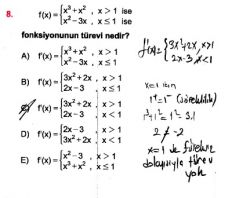 8. f(x) = { x³+x² , x > 1 ise
x²−3x , x ≤ 1 ise
fonksiyonunun türevi nedir?
A) f(x) = { x³+x² , x > 1
x²−3x , x ≤ 1
B) f(x) = { 3x²+2x , x > 1
2x−3 , x ≤ 1
f(x) = { 3x²+2x , x > 1
2x−3 , x < 1
D) f(x) = { 2x−3 , x > 1
3x²+2x , x < 1
E) f(x) = { x²−3 , x > 1
x³+x² , x ≤ 1
f'(x) = { 3x²+2x, x>1
2x-3, x<1
x=1 için
1⁺=1⁻
1³+1²=1²-3.1
2≠-2
x=1 de
dolayısıyla türev
yok